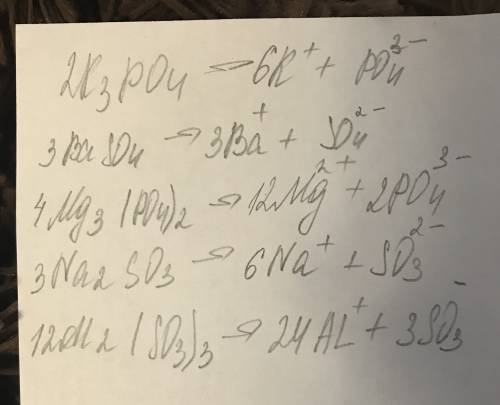 2K₃PO₄ → 6K⁺ + PO₄³⁻
3BaSO₄ → 3Ba⁺ + SO₄²⁻
4Mg₃(PO₄)₂ → 12Mg²⁺ + 2PO₄³⁻
3Na₂SO₃ → 6Na⁺ + SO₃²⁻
12Al₂(SO₃)₃ → 24AL⁺ + 3SO₃⁻